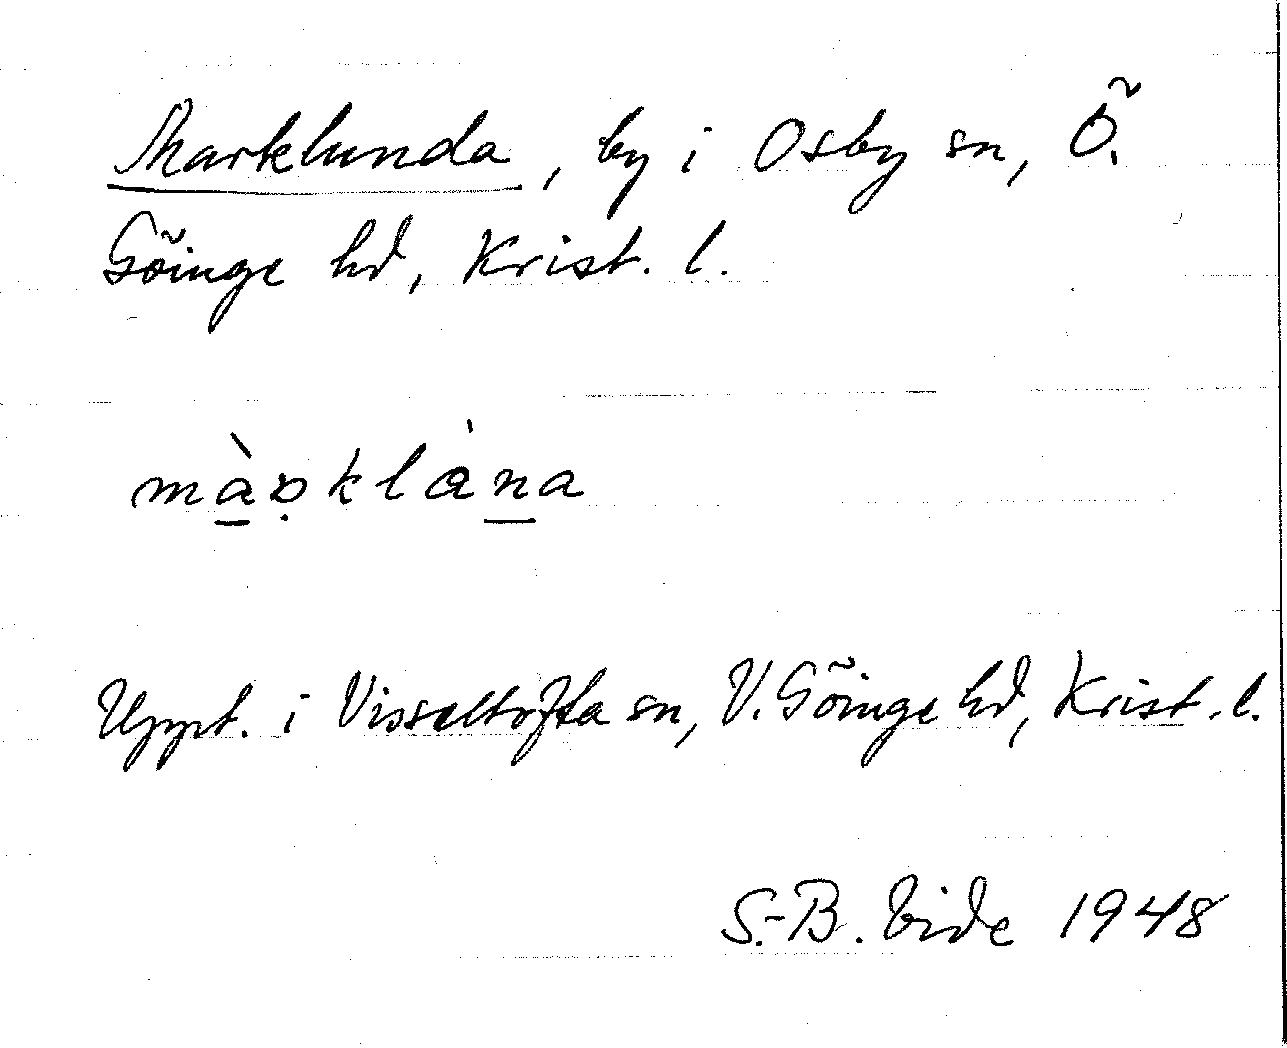 Marklunda, by i Osby sn, Ö.
Göinge hd, Krist. l.
mà̱ʀ̣klàṉa
Uppt. i Visseltofta sn, V. Göinge hd, Krist. l.
S.-B. Vide 1948